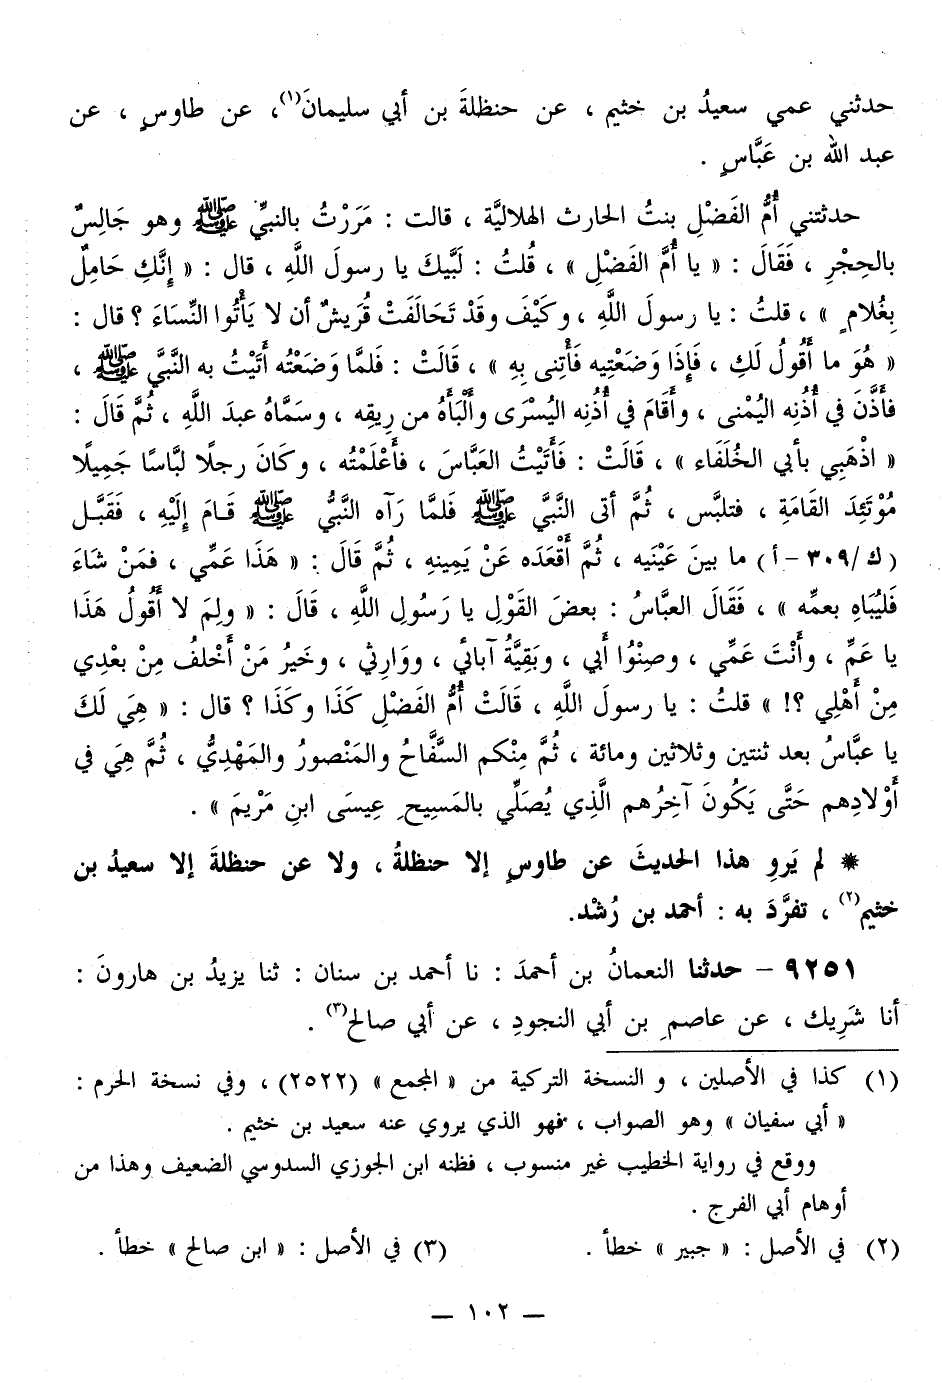 حدثني عمي سعيدُ بن خثيم ، عن حنظلةَ بن أبي سليمانَ(١)، عن طاوسٍ ، عن
عبد الله بن عَبَّاسٍ .
حدثتني أُمُّ الفَضْلِ بنتُ الحارث الهلاليَّة ، قالت : مَرَرْتُ بالنبيِّ ﷺ وهو جَالِسٌ
بالحِجْرِ ، فَقَالَ : « يا أُمَّ الفَضْلِ » ، قُلتُ : لَبَّيكَ يا رسولَ اللَّهِ ، قال : « إِنَّكِ حَامِلٌ
بِغُلامٍ » ، قلتُ : يا رسولَ اللَّهِ ، وكَيْفَ وقَدْ تَحَالَفَتْ قُرَيشٌ أن لا يَأْتُوا النِّسَاءَ ؟ قال :
« هُوَ ما أَقُولُ لَكِ ، فَإِذَا وَضَعْتِيه فَأْتِنى بِهِ » ، قَالَتْ : فَلمَّا وَضَعْتُه أَتَيْتُ به النَّبيَّ ﷺ ،
فأَذَّنَ في أُذُنِه اليُمْنى ، وأَقَامَ في أُذُنِه اليُسْرَى وأَلْبَأَهُ من رِيقِه ، وسَمَّاهُ عبدَ اللَّهِ ، ثُمَّ قَالَ :
« اذْهَبِي بأبي الخُلَفَاء » ، قَالَتْ : فَأَتَيْتُ العَبَّاسَ ، فأَعْلَمْتُه ، وكَانَ رجلًا لبَّاسًا جَمِيلًا
مُوْتَئِدَ القَامَةِ ، فتلبَّس ، ثُمَّ أتى النَّبيَّ ﷺ فَلمَّا رَآه النَّبيُّ ﷺ قَـامَ إِلَيْهِ ، فَقَبَّـل
(ك/٣٠٩ - أ) ما بينَ عَيْنَيه ، ثُمَّ أَقْعَدَه عَنْ يَمِينِهِ ، ثُمَّ قَالَ : « هَذَا عَمِّي ، فمَنْ شَاءَ
فَليُبَاهِ بعمِّه » ، فَقَالَ العبَّاسُ : بعضَ القَوْلِ يا رَسُولِ اللَّهِ ، قَالَ : « ولِمَ لا أَقُولُ هَذَا
يا عَمِّ ، وأَنْتَ عَمِّي ، وصِنْوُا أَبي ، وبَقِيَّةُ آبائي ، ووَارِثي ، وخَيرُ مَنْ أَخْلفُ مِنْ بعْدِي
مِنْ أَهْلِي ؟! » قلتُ : يا رسولَ اللَّهِ ، قَالَتْ أُمُّ الفَضْلِ كَذَا وكَذَا ؟ قال : « هِيَ لَكَ
يا عبَّاسُ بعد ثنتين وثلاثين ومائة ، ثُمَّ مِنْكم السَّفَّاحُ والمَنْصورُ والمَهْدِيُّ ، ثُمَّ هِيَ في
أَوْلادِهم حَتَّى يَكُونَ آخِرُهم الَّذِي يُصَلِّي بالمَسِيحِ عِيسَى ابنِ مَرْيمَ » .
* لم يَروِ هذا الحديثَ عن طاوسٍ إلا حنظلةُ ، ولا عن حنظلةَ إلا سعيدُ بن
خثيم(٢) ، تفرَّدَ به : أحمد بن رُشْد.
٩٢٥١ - حدثنا النعمانُ بن أحمدَ : نا أحمد بن سنان : ثنا يزيدُ بن هارونَ :
أنا شَرِيك ، عن عاصمِ بن أبي النجودِ ، عن أبي صالح(٣) .
(١) كذا في الأصلين ، و النسخة التركية من « المجمع » (٢٥٢٢) ، وفي نسخة الحرم :
« أبي سفيان » وهو الصواب ، فهو الذي يروي عنه سعيد بن خثيم .
ووقع في رواية الخطيب غير منسوب ، فظنه ابن الجوزي السدوسي الضعيف وهذا من
أوهام أبي الفرج .
(٢) في الأصل : « جبير » خطأ . (٣) في الأصل : « ابن صالح » خطأ .
— ١٠٢ —